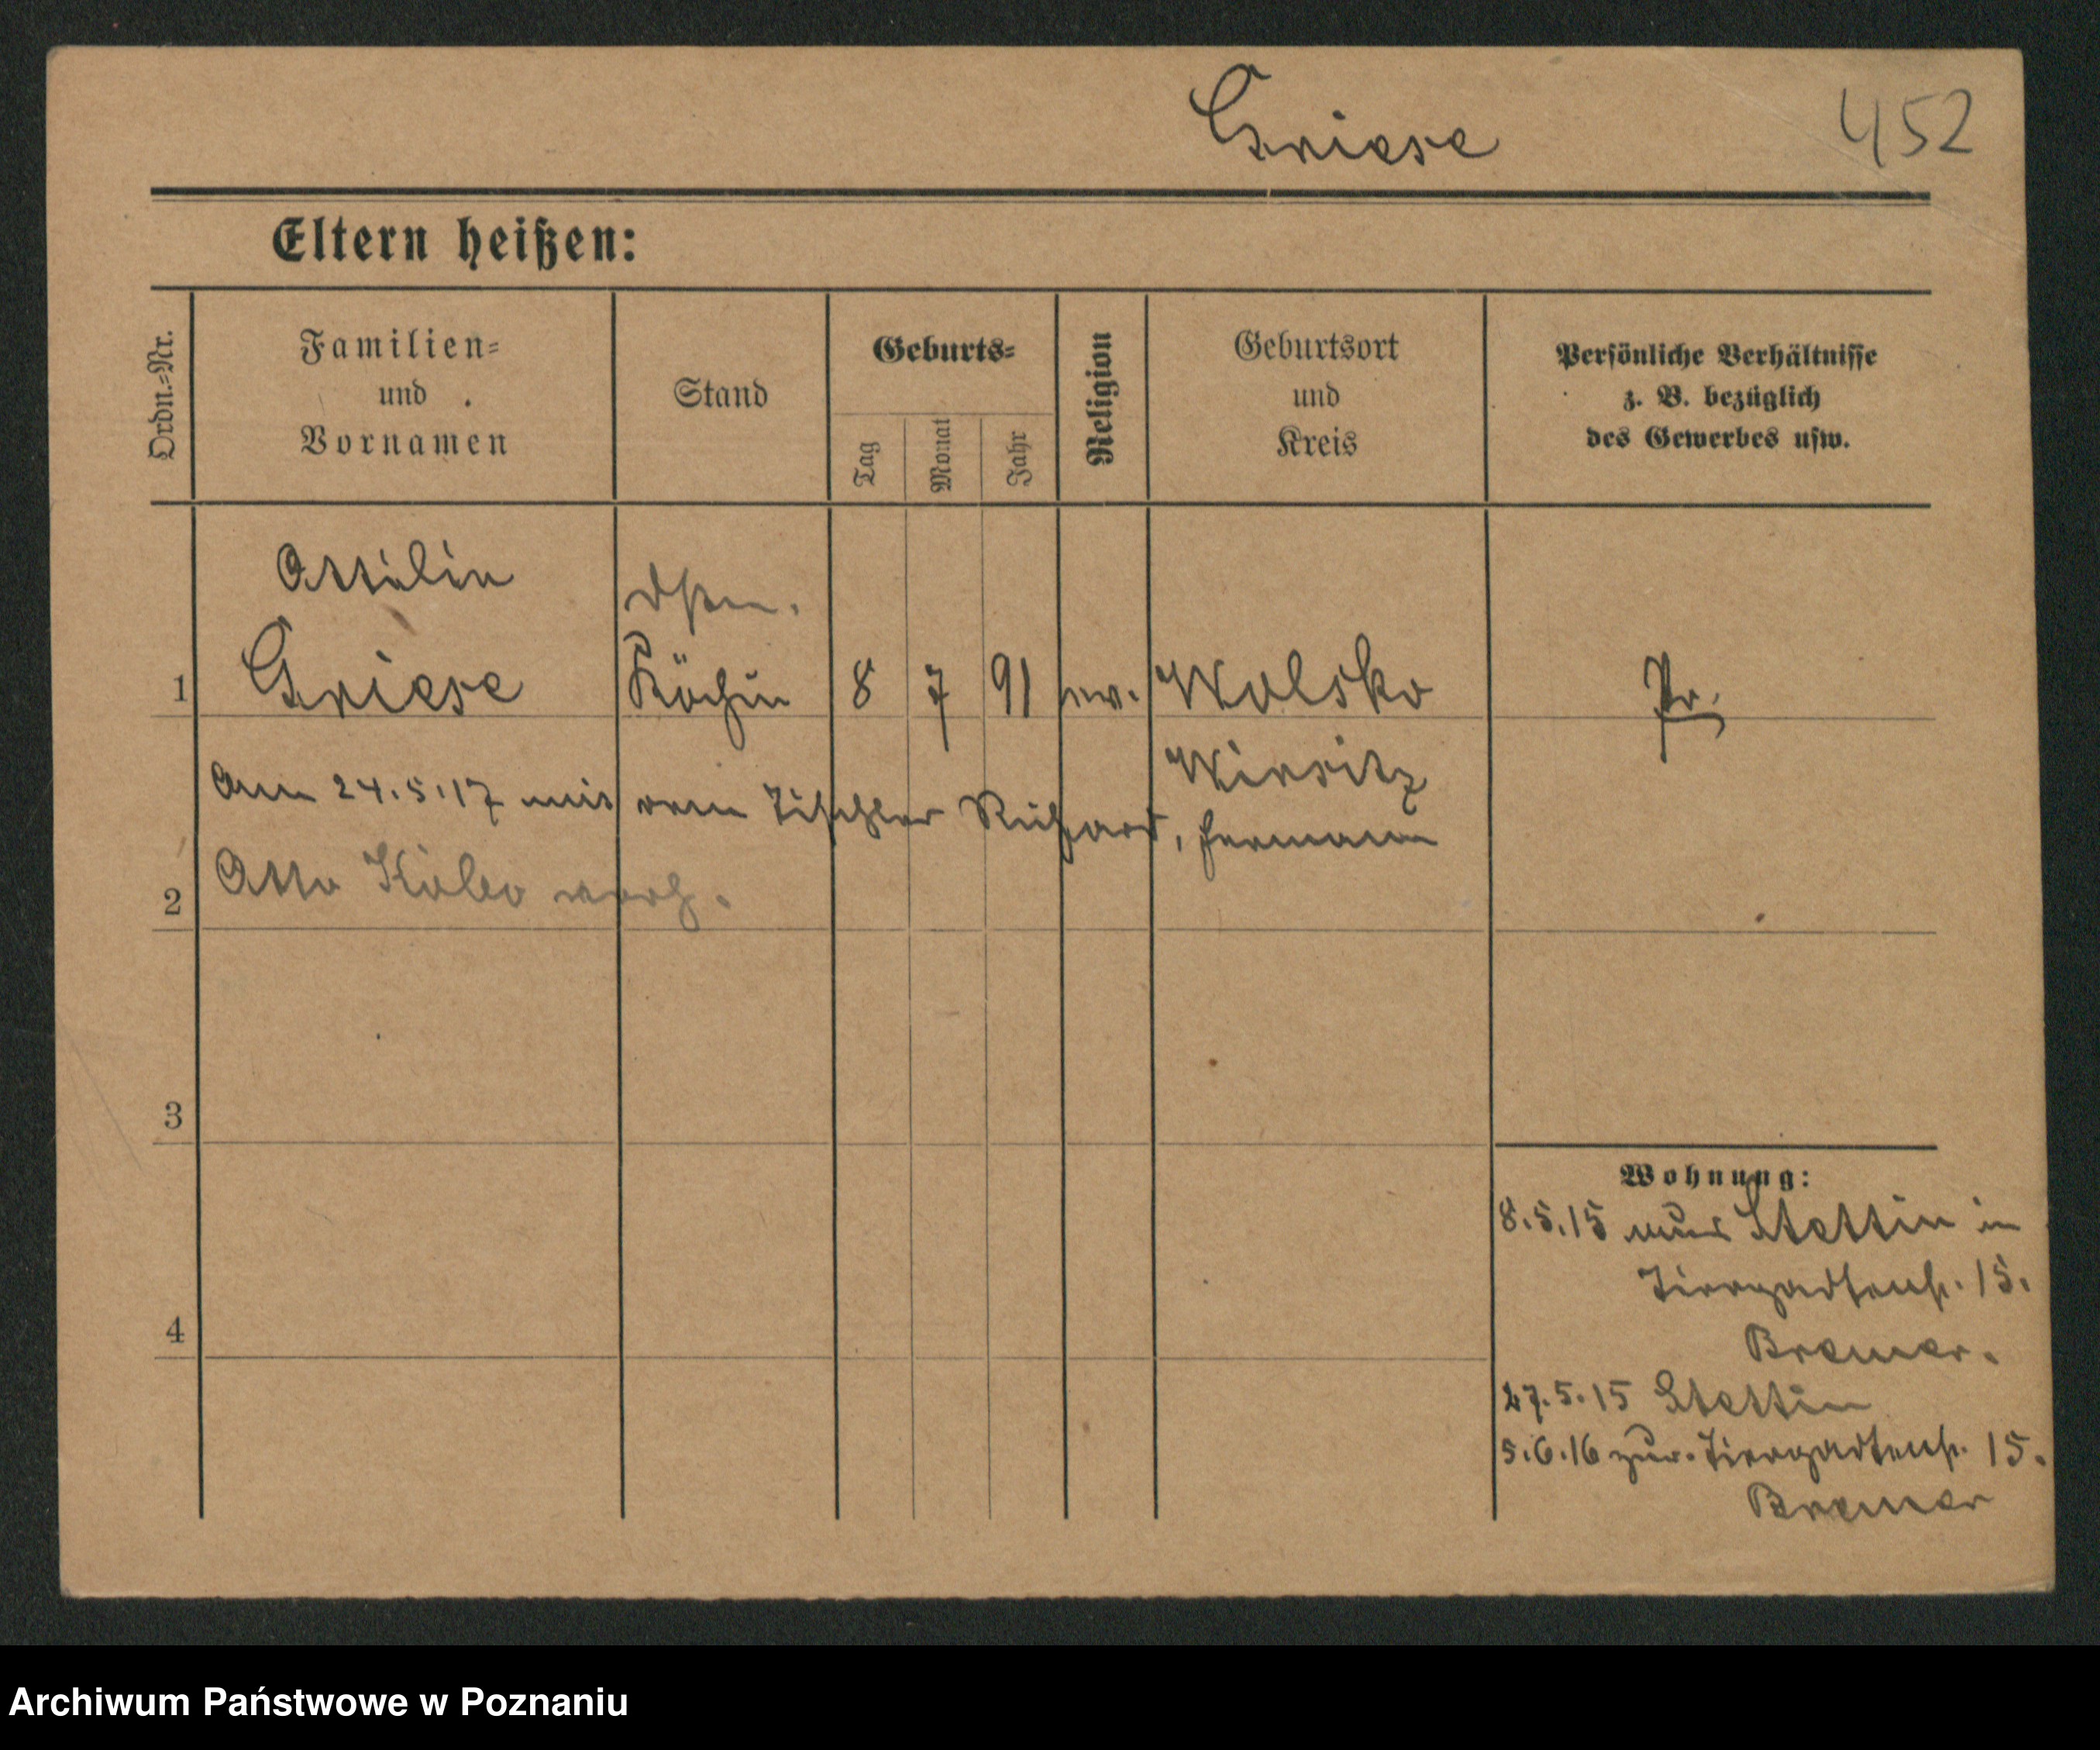 Griese 452
Eltern heißen:
Ordn.=Nr.
Familien=
und
Vornamen
Stand
Geburts=
Tag
Monat
Jahr
Religion
Geburtsort
und
Kreis
Persönliche Verhältnisse
z. B. bezüglich
des Gewerbes usw.
Ottilie
1 Griese Köchin 8 7 91 ev. Wolsko Pr.
Wirsitz
Am 24.5.17 mit dem Tischler Richard, Hermann
2 Otto verh.
3
4
Wohnung:
8.5.15 aus Stettin in
Tiergartenstr. 15.
Bremer.
27.5.15 Stettin
5.6.16 zur. Tiergartenstr. 15.
Bremer
Archiwum Państwowe w Poznaniu